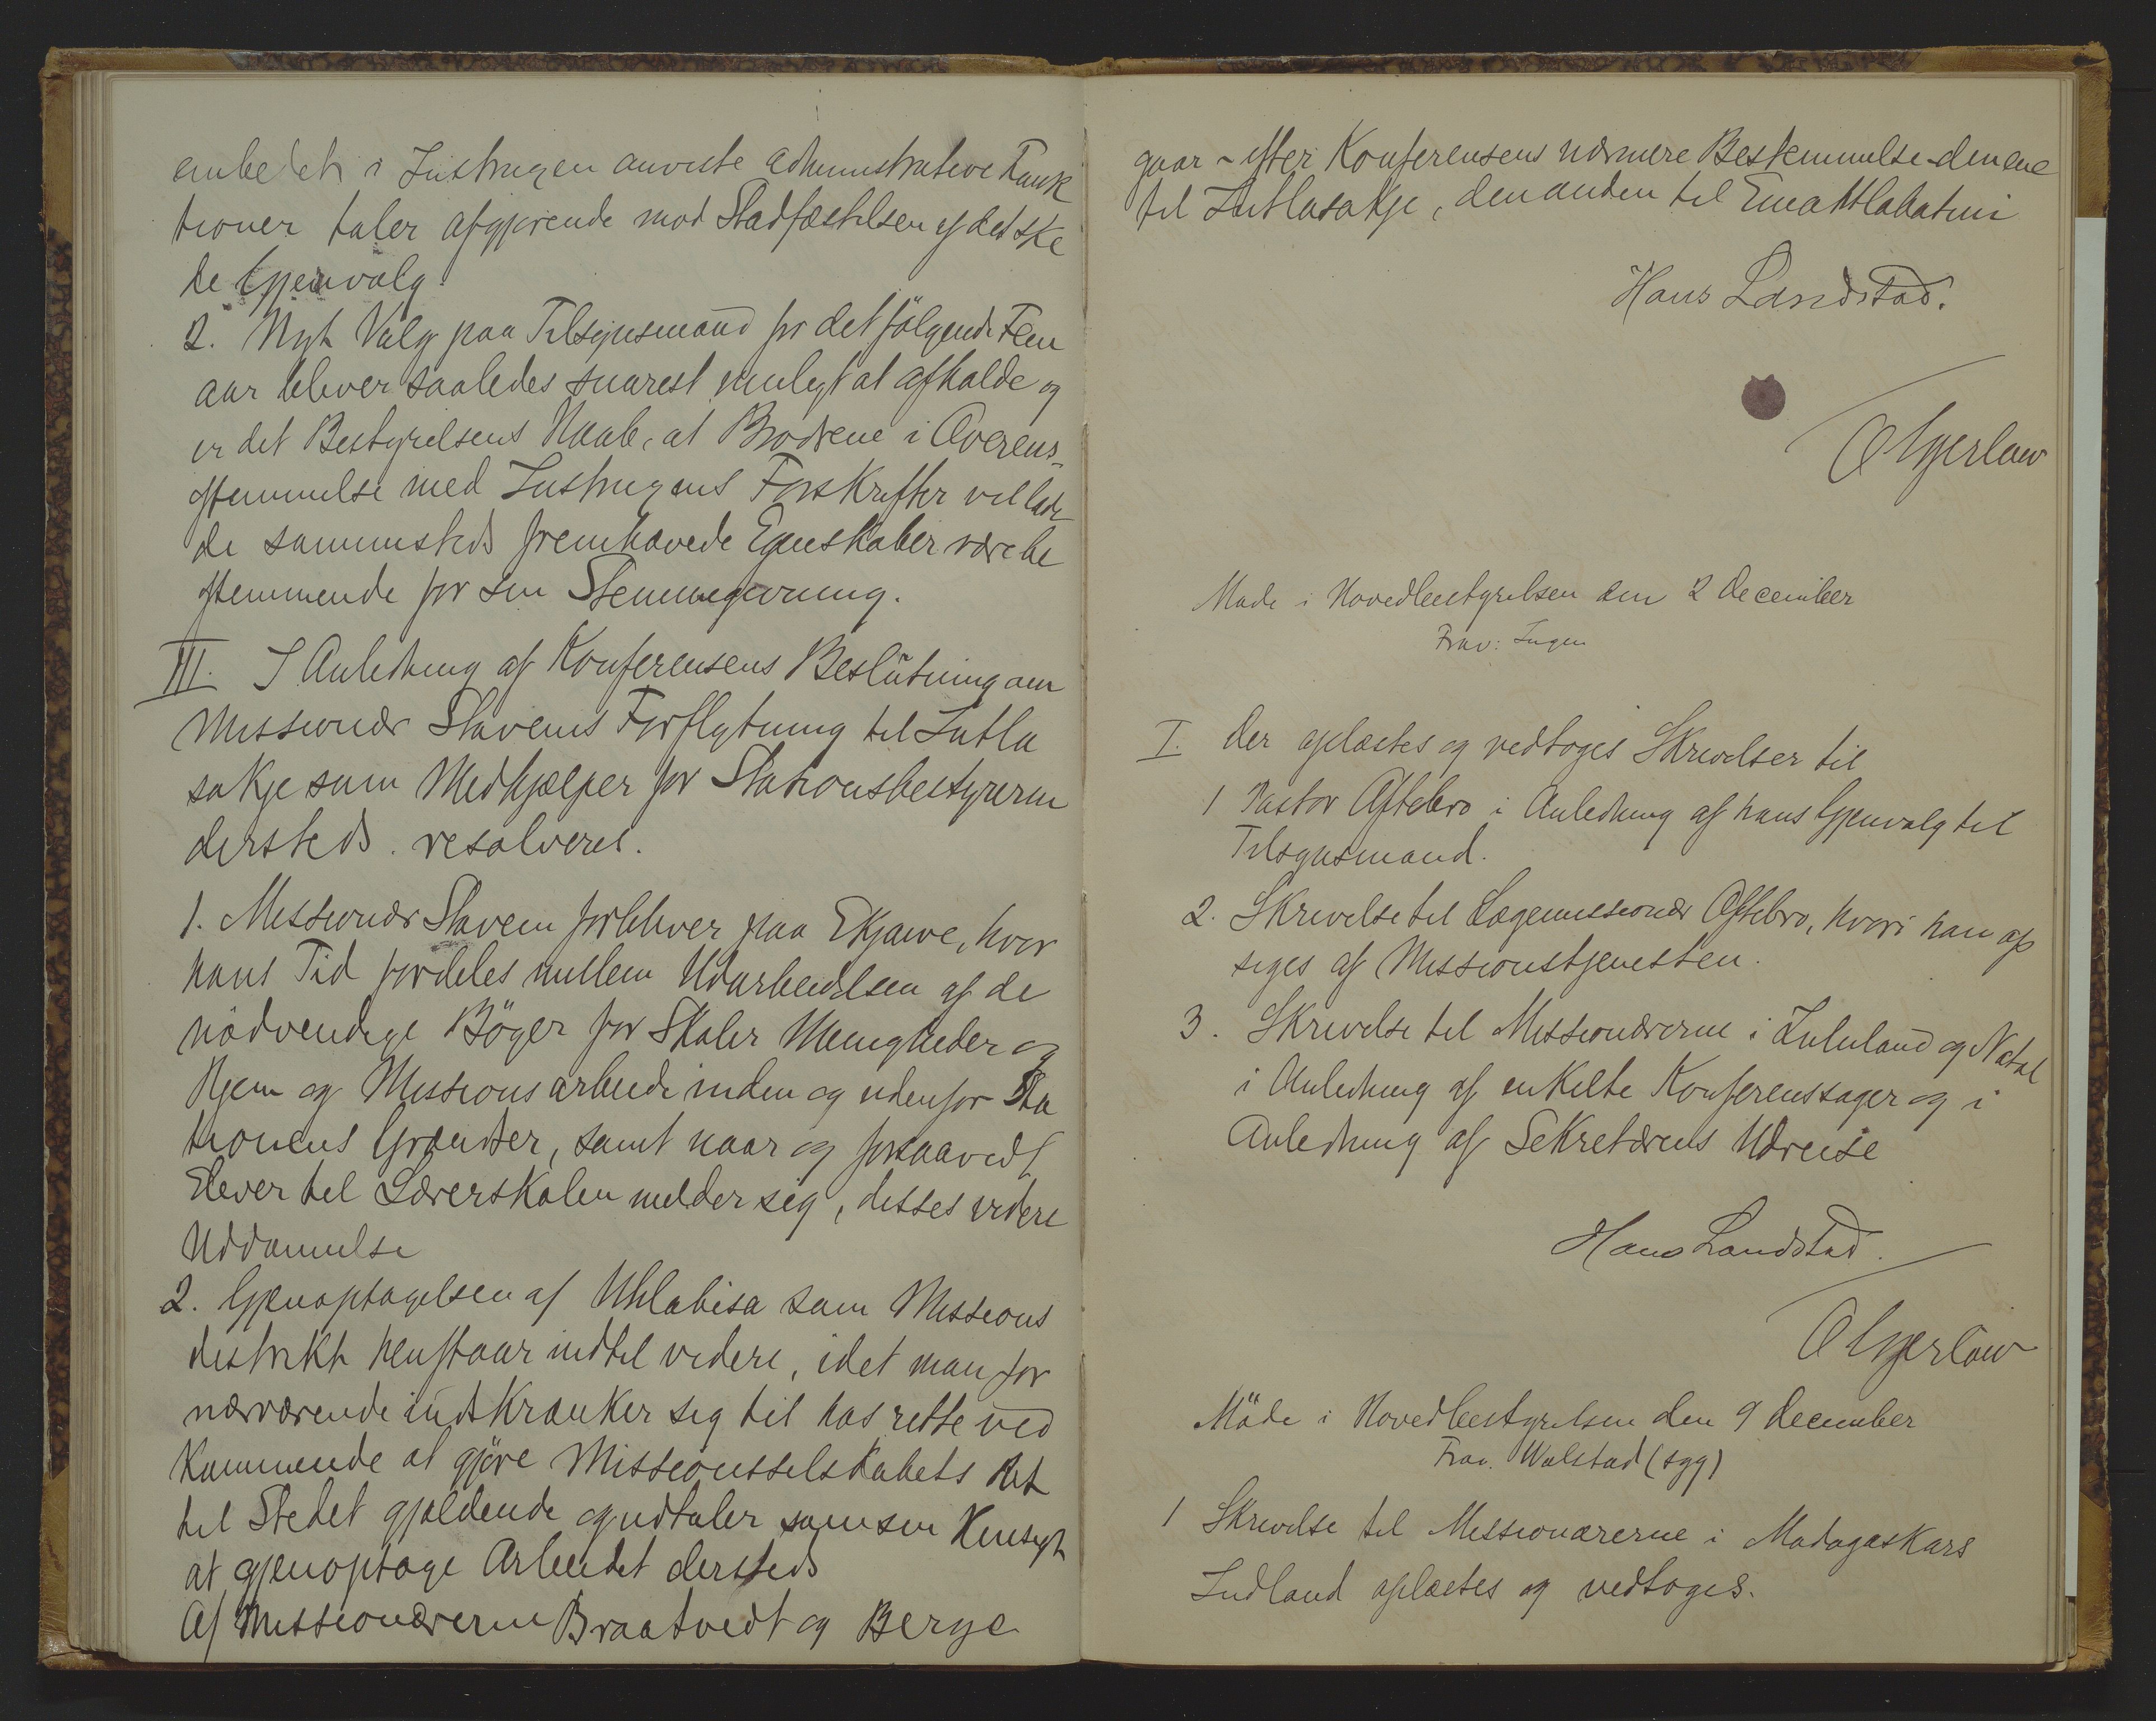 embedet i Instruxen anviste administrative Funk
tioner taler afgjørende mod Stadfæstelsen af det ske
de Gjenvalg.
2. Nyt Valg paa Tilsynsmand for det følgende Fem
aar bliver saaledes snarest muligt at afholde og
er det Bestyrelsens Haab, at Brødrene i Overens-
stemmelse med Instruxens Forskrifter vil lade
de sammesteds fremhævede Egenskaber være be
stemmende for sin Stemmegivning.
III. I Anledning af Konferensens Beslutning om
Missionær Stavems Forflytning til Intla
sakje som Medhjælper for Stationsbestyreren
dersteds. resolveres.
1. Missionær Stavem forbliver paa Ekjowe, hvor
hans Tid fordeles mellem Udarbeidelsen af de
nödvendige Böger for Skoler Menigheder og
Hjem og Missionsarbeide inden og udenfor Sta
tionens Grændser, samt naar og forsaavidt
Elever til Lærerskolen melder sig, disses videre
Uddannelse
2. Gjenoptagelsen af Uhlabisa som Missions
distrikt henstaar indtil videre, idet man for
nærværende indskrænker sig til hos rette ved
kommende at gjöre Missionsselskabets Ret
til Stedet gjældende og udtaler som sin Hensigt
at gjenoptage Arbeidet dersteds
Af Missionærerne Braatvedt og Berge
gaar - efter Konferensens nærmere Bestemmelse - den ene
til Intlasakje, den anden til Emahlabatini
Hans Landstad.
O Gjerløw
Møde i Hovedbestyrelsen den 2 december
Frav: Ingen
I. Der oplæstes og vedtoges Skrivelser til
1 Pastor Oftebro i Anledning af hans Gjenvalg til
Tilsynsmand.
2. Skrivelse til Lægemissionær Oftebro, hvori han op
siges af Missionstjenesten.
3. Skrivelse til Missionærerne i Zululand og Natal
i Anledning af enkelte Konferenssager og i
Anledning af Sekretærens Udreise
Hans Landstad.
O Gjerløw
Möde i Hovedbestyrelsen den 9 december
Frav. Walstad (syg)
1 Skrivelse til Missionærerne i Madagaskars
Indland oplæstes og vedtoges.